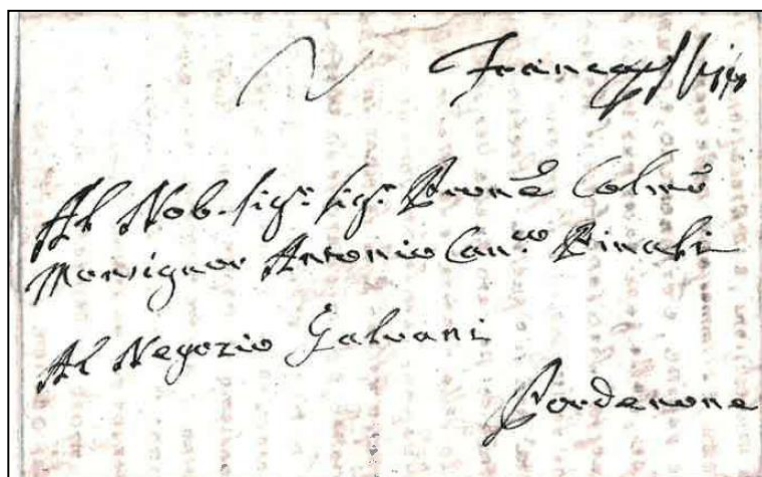 Franca
Al Nob. Sigr. Sigr. Pronē Colmō
Monsignor Antonio Can.co Pinali
Al Negozio Galvani
Pordenone